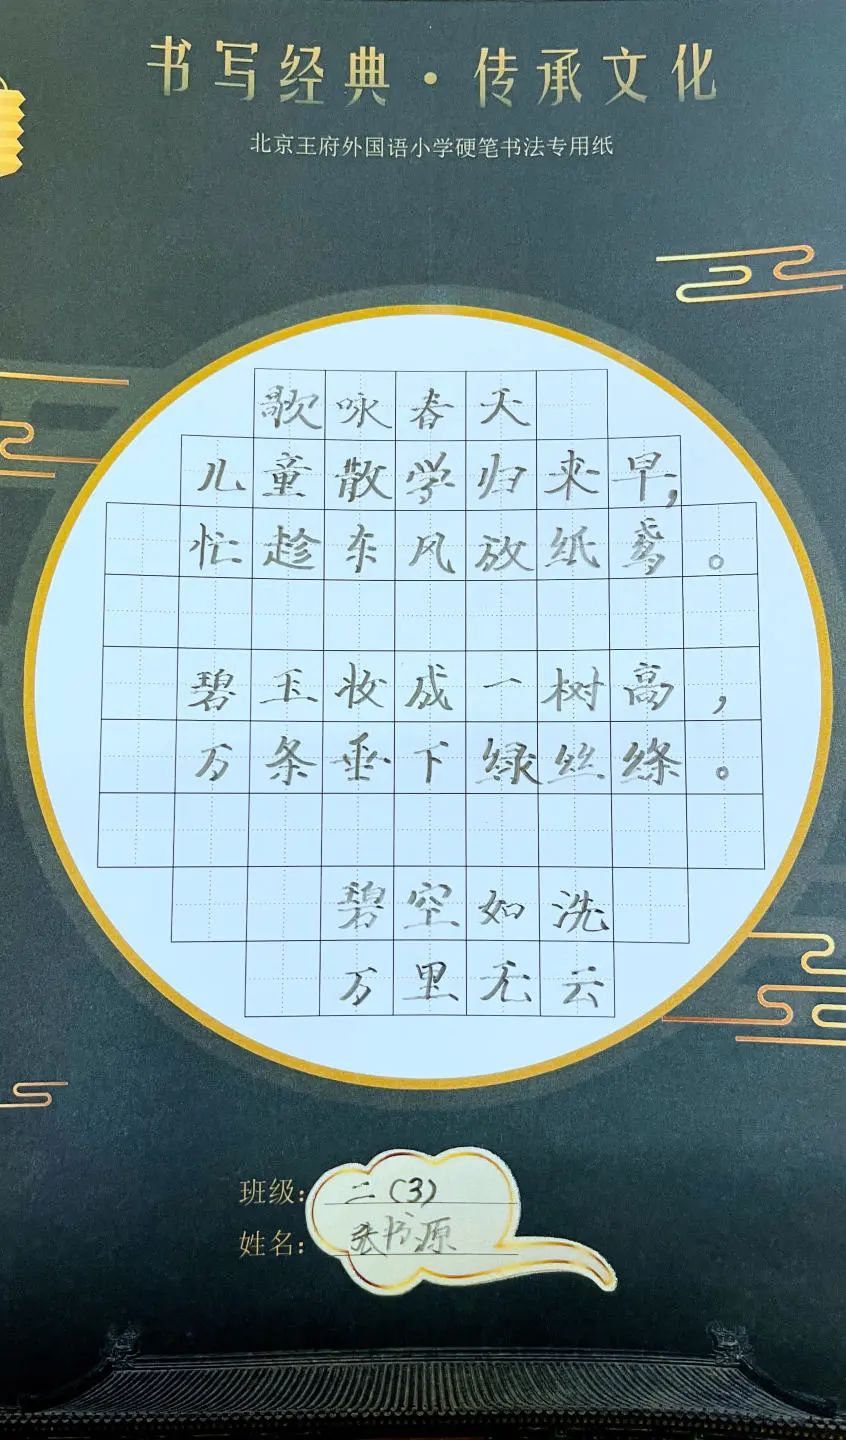 书写经典·传承文化
北京王府外国语小学硬笔书法专用纸
歌咏春天
儿童散学归来早，
忙趁东风放纸鸢。
碧玉妆成一树高，
万条垂下绿丝绦。
碧空如洗
万里无云
班级：二（3）
姓名：张书源